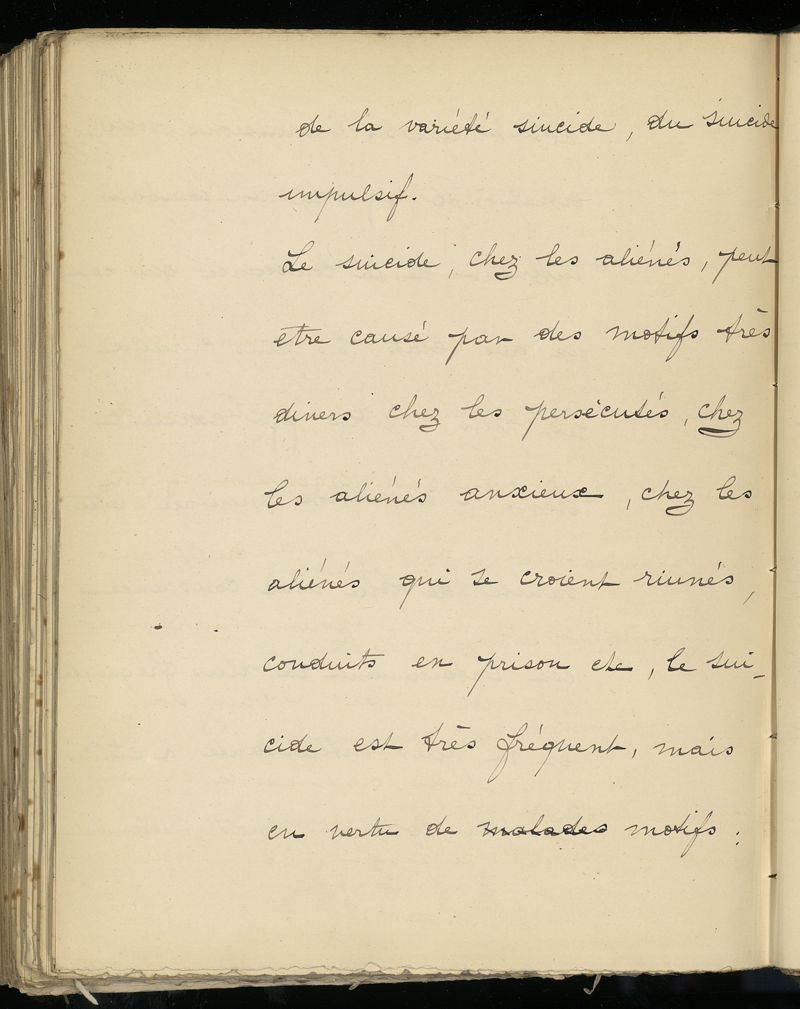 de la variété suicide, du suicide
impulsif.
Le suicide, chez les aliénés, peut
etre causé par des motifs très
divers chez les persécutés, chez
les aliénés anxieux, chez les
aliénés qui se croient riunés,
conduits en prison etc, le sui-
cide est très fréquent, mais
en vertu de malades motifs.